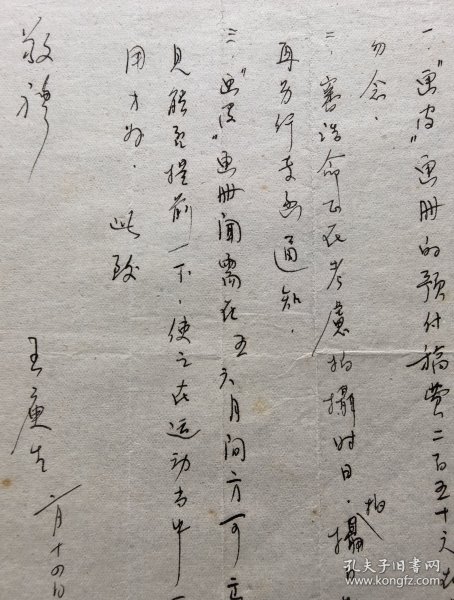 一."画皮"画册的预付稿费二百五十元
勿念.
二.
命正在考虑拍摄时日.拍摄
再另行专函通知.
三."画皮"画册闻需在五六月间方可
见能否提前一下.使之在运动当中
用才好.此致
敬礼
王庚生
月十四日
孔夫子旧书网
www.kongfz.com